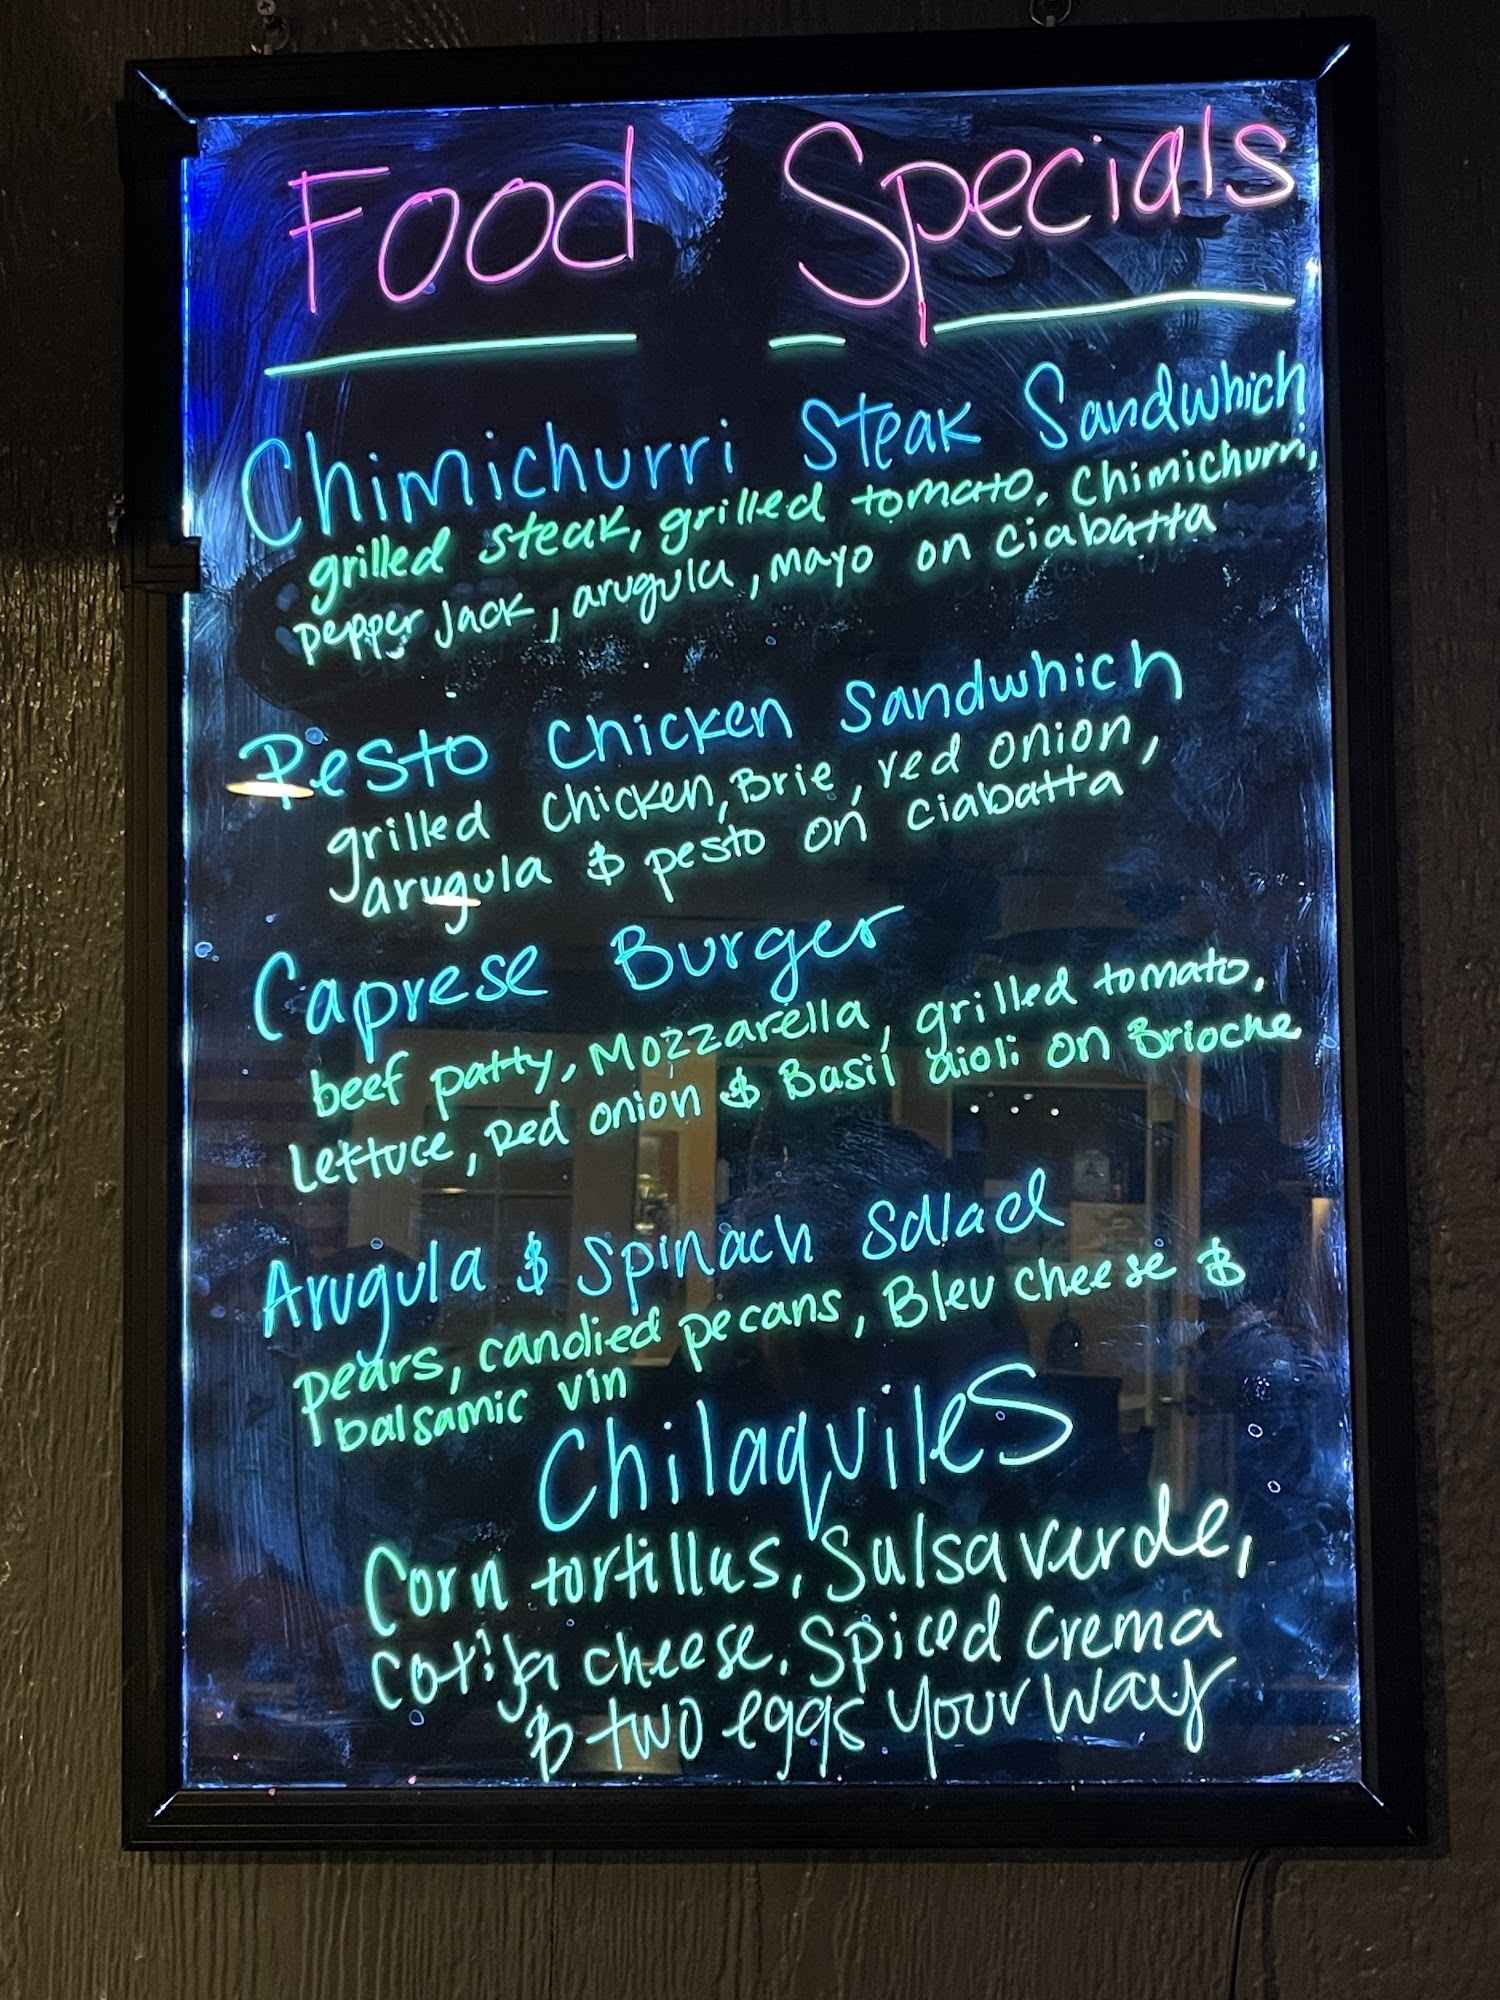 Food Specials
Chimichurri Steak Sandwhich
grilled steak, grilled tomato, Chimichurri,
pepper Jack, arugula, mayo on ciabatta
Pesto Chicken Sandwhich
grilled chicken, Brie, red onion,
arugula & pesto on ciabatta
Caprese Burger
beef patty, Mozzarella, grilled tomato,
Lettuce, Red onion & Basil aioli on Brioche
Arugula & Spinach Salad
pears, candied pecans, Bleu cheese &
balsamic vin
Chilaquiles
Corn tortillas, Salsa verde,
Cotija cheese, Spiced Crema
& two eggs your way